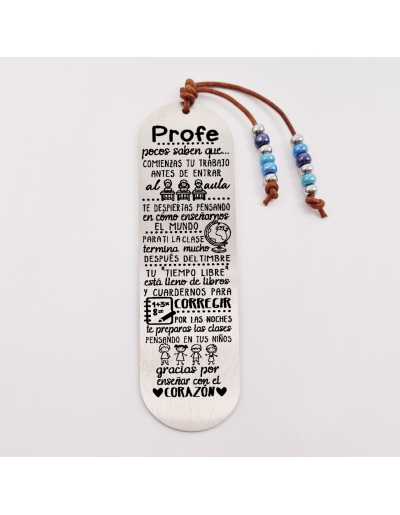 Profe
pocos saben que...
COMIENZAS TU TRABAJO
ANTES DE ENTRAR
al aula
TE DESPIERTAS PENSANDO
en cómo enseñarnos
EL MUNDO
PARA TI LA CLASE
termina mucho
DESPUÉS DEL TIMBRE
TU "TIEMPO LIBRE"
está lleno de libros
Y CUARDERNOS PARA
1+3×
8=
CORREGIR
POR LAS NOCHES
te preparas las clases
PENSANDO EN TUS NIÑOS
gracias por
enseñar con el
CORAZÓN